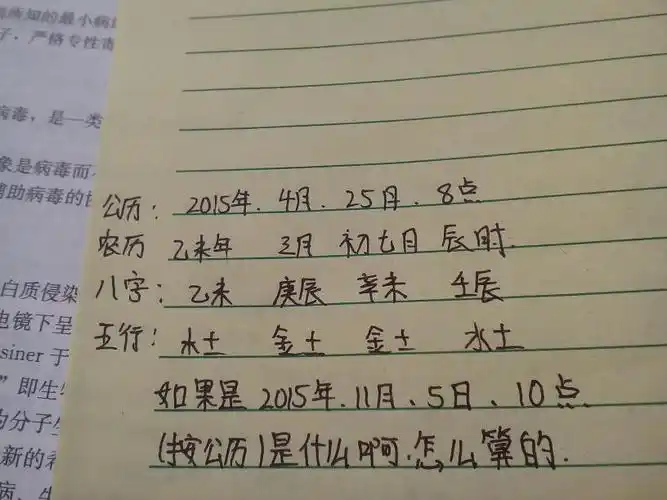 病所知的最小病
子，严格专性寄
病毒，是一类
象是病毒而
帮助病毒的
公历： 2015年. 4月. 25日. 8点
农历 乙未年 三月 初七日 辰时.
白质侵染
八字： 乙未 庚辰 辛未 壬辰
电镜下呈
五行： 木土 金土 金土 水土
siner 于
如果是 2015年. 11月、5日、10点
” 即生
(按公历)是什么啊. 怎么算的.
的分子
新的
病，